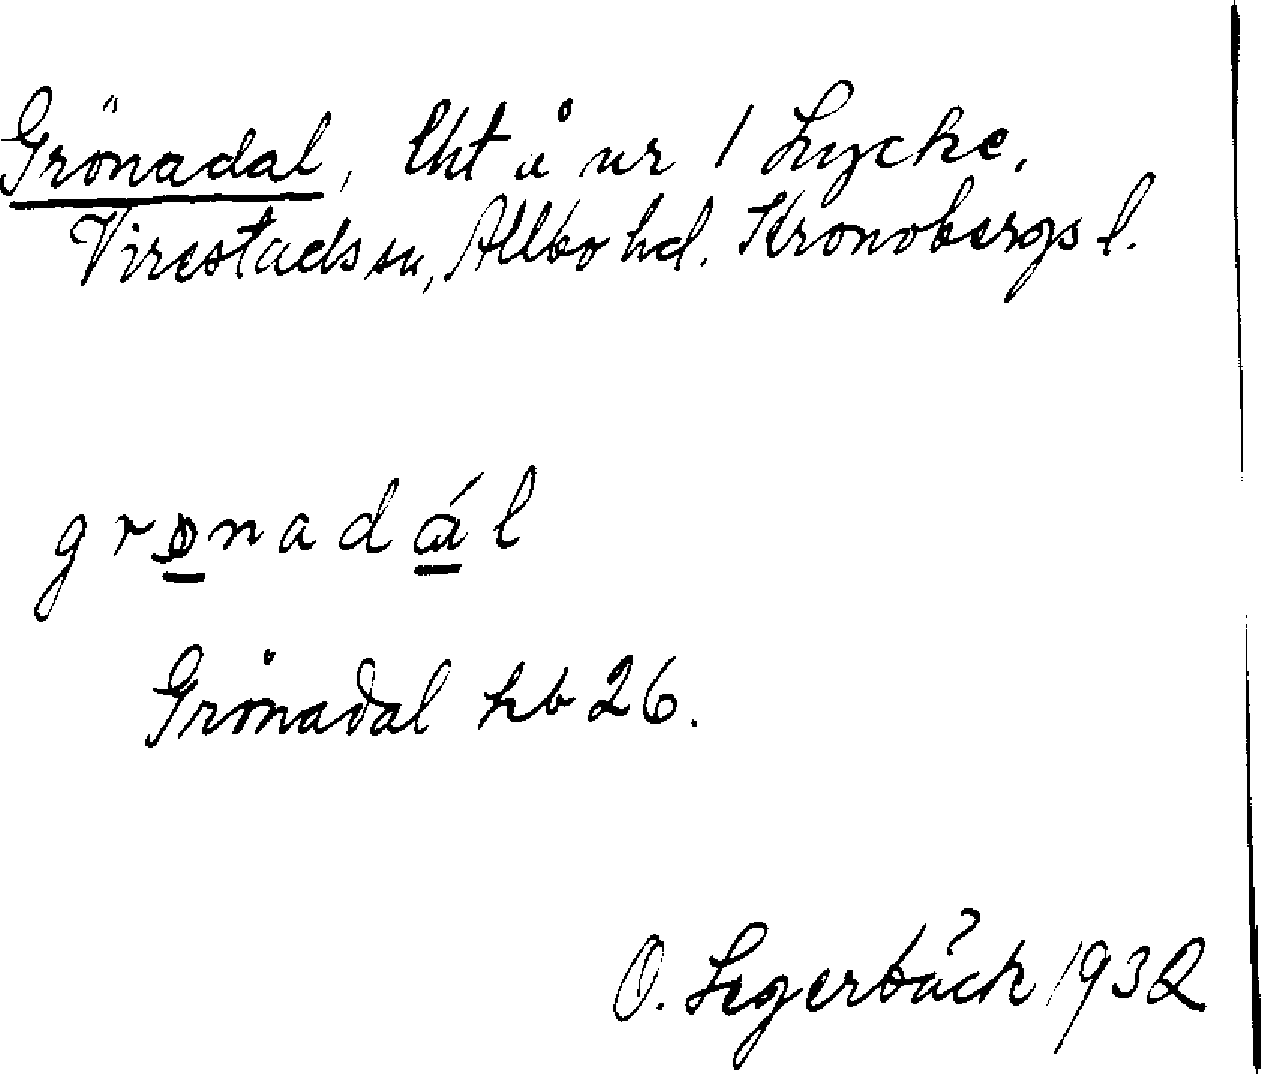 Grönadal, lht å nr 1 Lycke.
Virestads sn, Allbo hd. Kronobergs l.
grønadál
Grönadal hb 26.
O. Segerbäck 1932